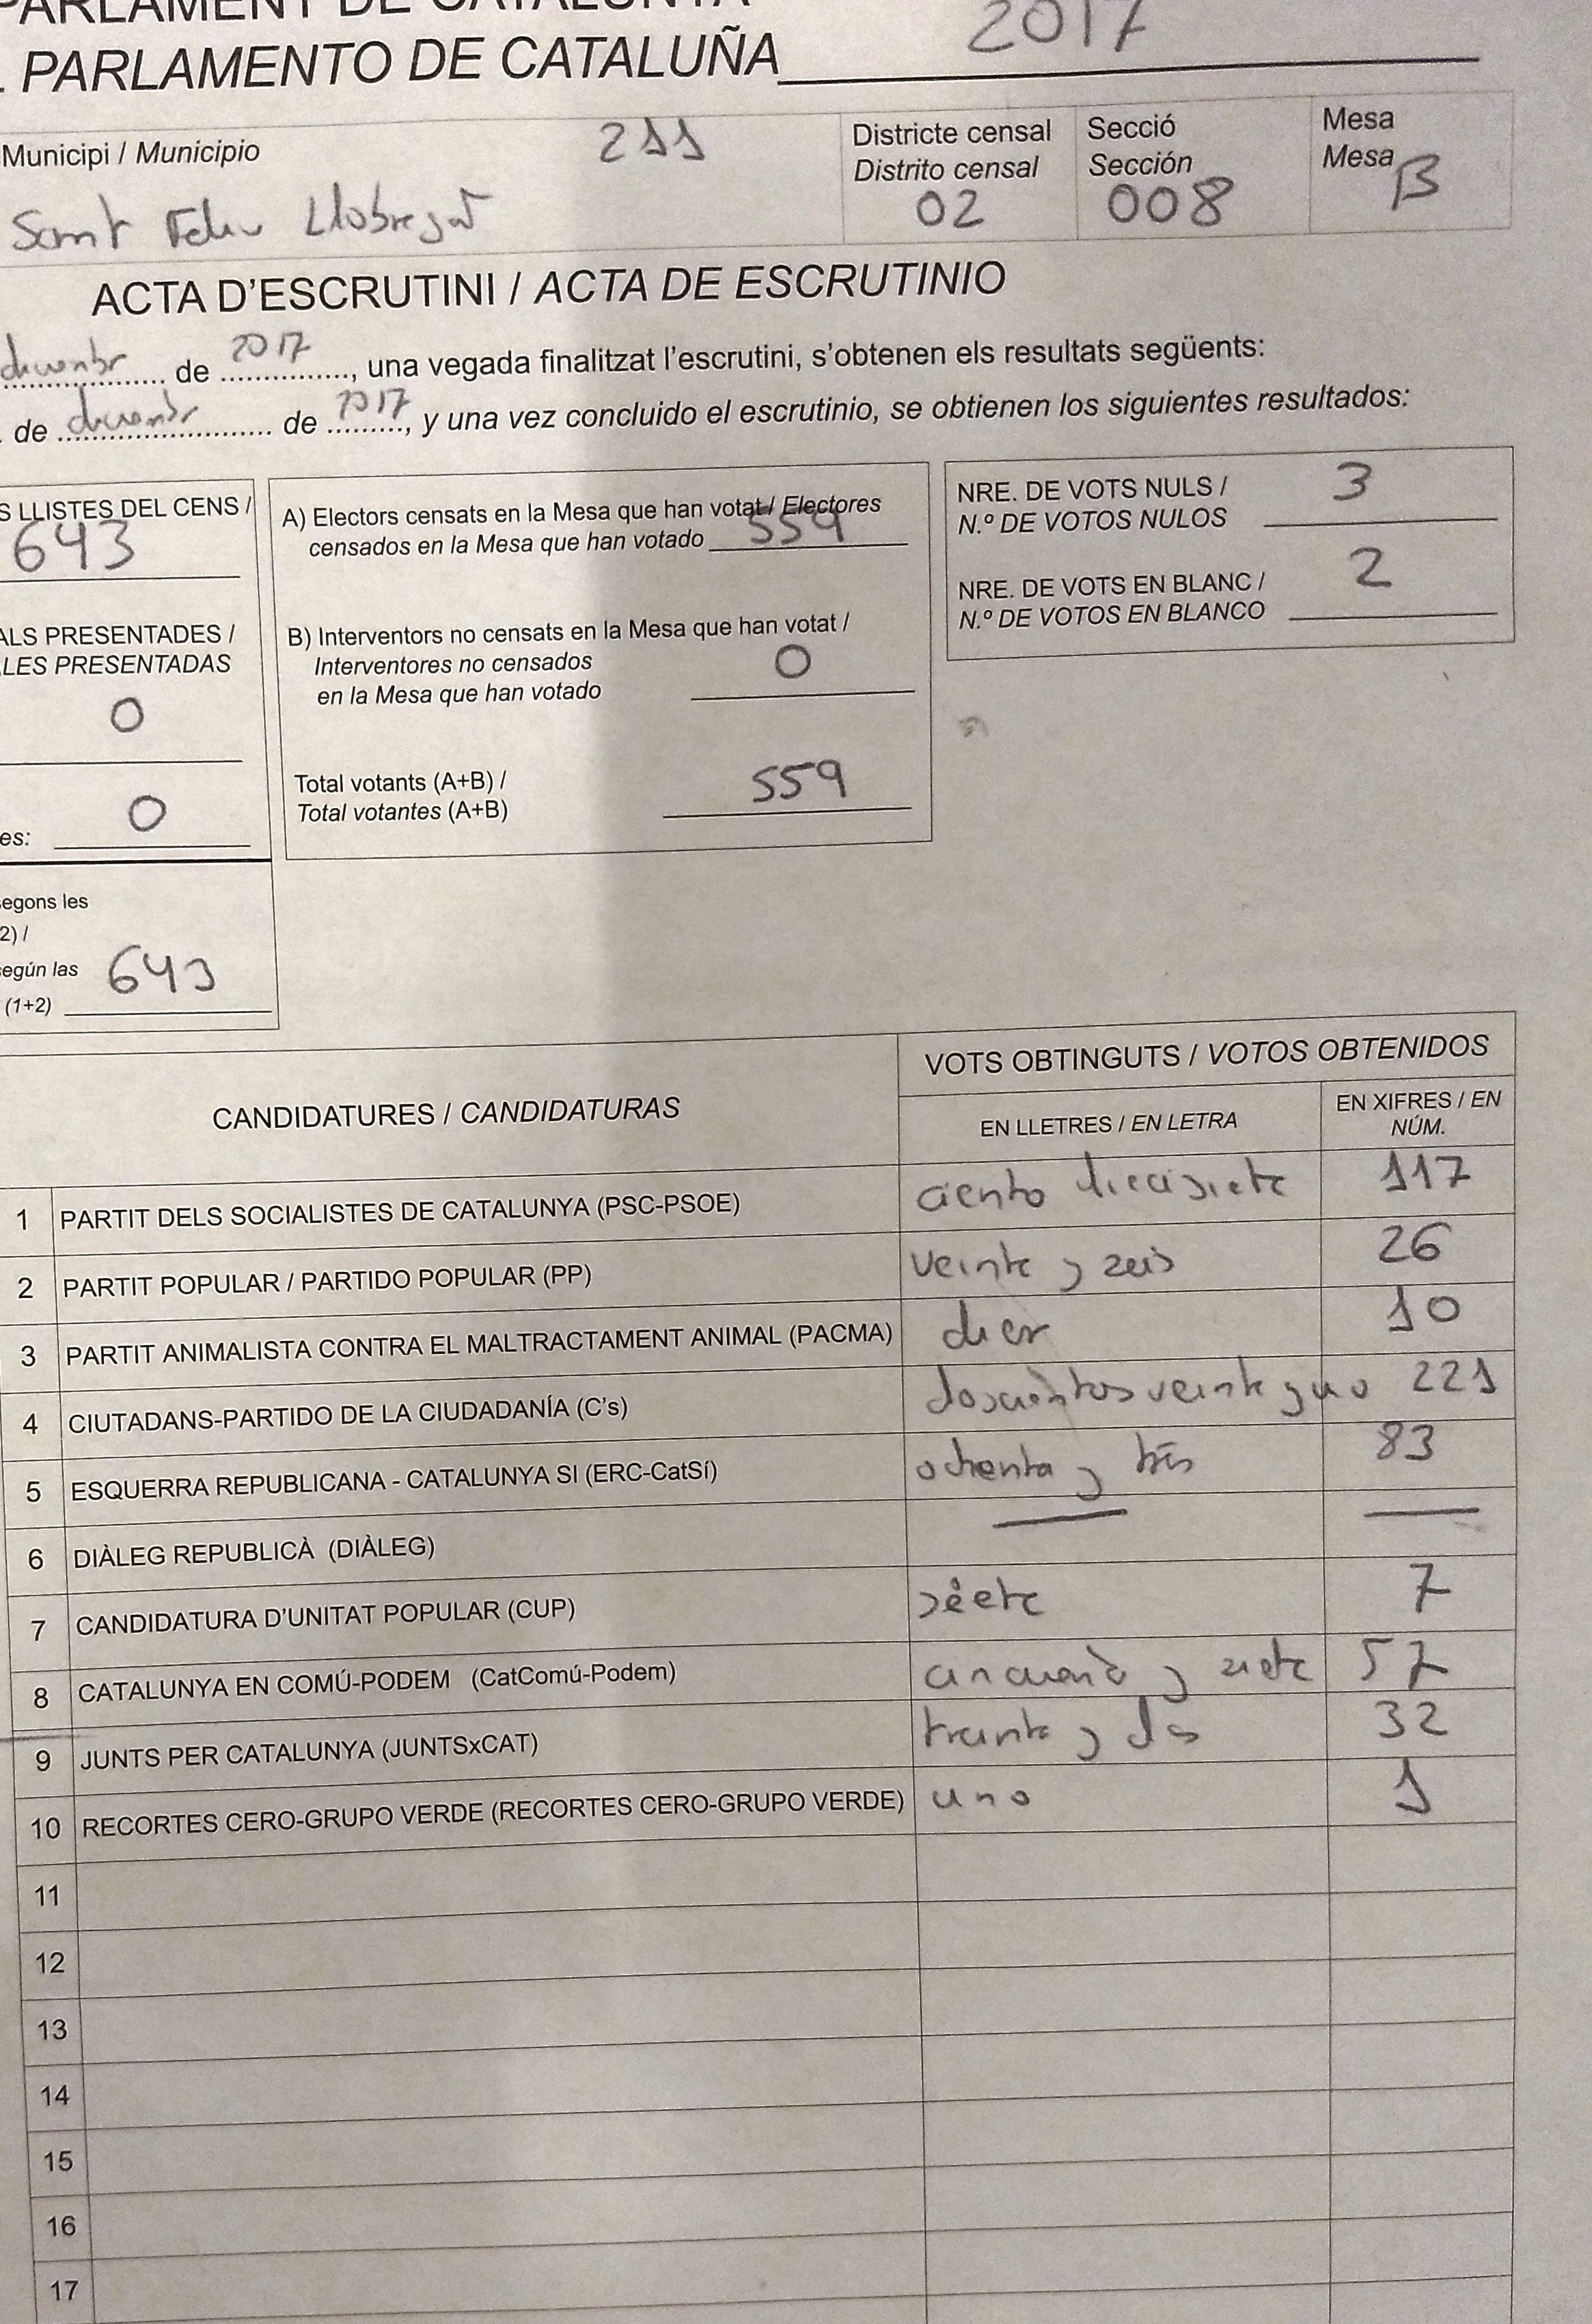 PARLAMENT DE CATALUNYA
PARLAMENTO DE CATALUÑA 2017
Municipi / Municipio 211
Sant Feliu Llobregat
Districte censal
Distrito censal
02
Secció
Sección
008
Mesa
Mesa
B
ACTA D'ESCRUTINI / ACTA DE ESCRUTINIO
de 2017, una vegada finalitzat l'escrutini, s'obtenen els resultats següents:
de de 2017, y una vez concluido el escrutinio, se obtienen los siguientes resultados:
S LLISTES DEL CENS /
643
ALS PRESENTADES /
LES PRESENTADAS
0
es: 0
segons les
2) /
según las 643
(1+2)
A) Electors censats en la Mesa que han votat / Electores
censados en la Mesa que han votado 559
B) Interventors no censats en la Mesa que han votat /
Interventores no censados
en la Mesa que han votado 0
Total votants (A+B) /
Total votantes (A+B) 559
NRE. DE VOTS NULS /
N.º DE VOTOS NULOS 3
NRE. DE VOTS EN BLANC /
N.º DE VOTOS EN BLANCO 2
CANDIDATURES / CANDIDATURAS
VOTS OBTINGUTS / VOTOS OBTENIDOS
EN LLETRES / EN LETRA
EN XIFRES / EN
NÚM.
1 PARTIT DELS SOCIALISTES DE CATALUNYA (PSC-PSOE) ciento diecisiete 117
2 PARTIT POPULAR / PARTIDO POPULAR (PP) veinte y seis 26
3 PARTIT ANIMALISTA CONTRA EL MALTRACTAMENT ANIMAL (PACMA) diez 10
4 CIUTADANS-PARTIDO DE LA CIUDADANÍA (C's) doscientos veinte y uno 221
5 ESQUERRA REPUBLICANA - CATALUNYA SI (ERC-CatSí) ochenta y tres 83
6 DIÀLEG REPUBLICÀ (DIÀLEG) — —
7 CANDIDATURA D'UNITAT POPULAR (CUP) siete 7
8 CATALUNYA EN COMÚ-PODEM (CatComú-Podem) cincuenta y siete 57
9 JUNTS PER CATALUNYA (JUNTSxCAT) treinta y dos 32
10 RECORTES CERO-GRUPO VERDE (RECORTES CERO-GRUPO VERDE) uno 1
11
12
13
14
15
16
17